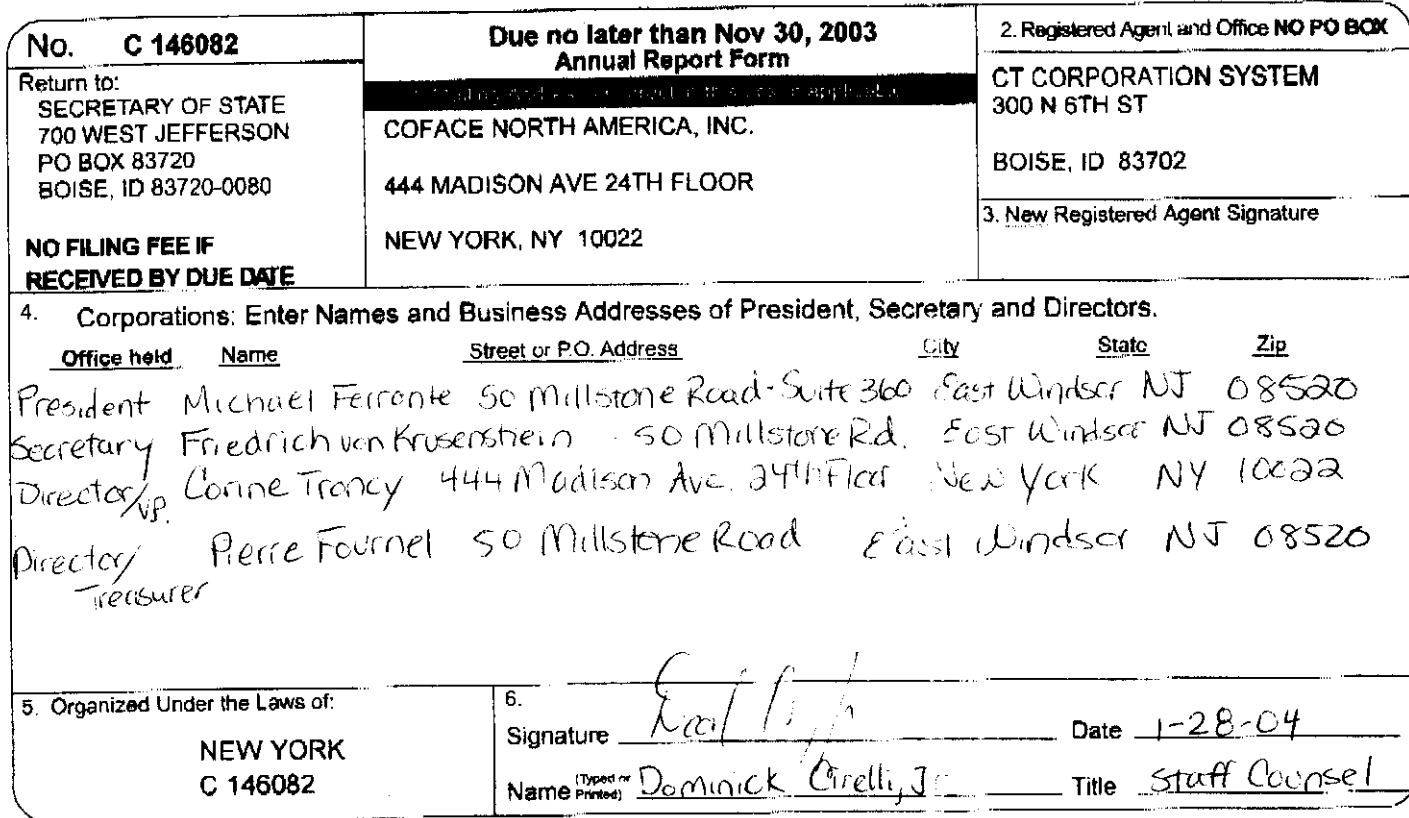 No. C 146082
Return to:
SECRETARY OF STATE
700 WEST JEFFERSON
PO BOX 83720
BOISE, ID 83720-0080
NO FILING FEE IF
RECEIVED BY DUE DATE
Due no later than Nov 30, 2003
Annual Report Form
COFACE NORTH AMERICA, INC.
444 MADISON AVE 24TH FLOOR
NEW YORK, NY 10022
2. Registered Agent and Office NO PO BOX
CT CORPORATION SYSTEM
300 N 6TH ST
BOISE, ID 83702
3. New Registered Agent Signature
4. Corporations: Enter Names and Business Addresses of President, Secretary and Directors.
Office held Name Street or P.O. Address City State Zip
President Michael Ferrante 50 Millstone Road-Suite 360 East Windsor NJ 08520
Secretary Friedrich von Krusenshein 50 Millstone Rd. East Windsor NJ 08520
Director/VP. Corine Troncy 444 Madison Ave. 24th Floor New York NY 10022
Director/ Pierre Fournel 50 Millstone Road East Windsor NJ 08520
Treasurer
5. Organized Under the Laws of:
NEW YORK
C 146082
6.
Signature Date 1-28-04
Name (Typed or Printed) Dominick Cirelli, Jr Title Staff Counsel